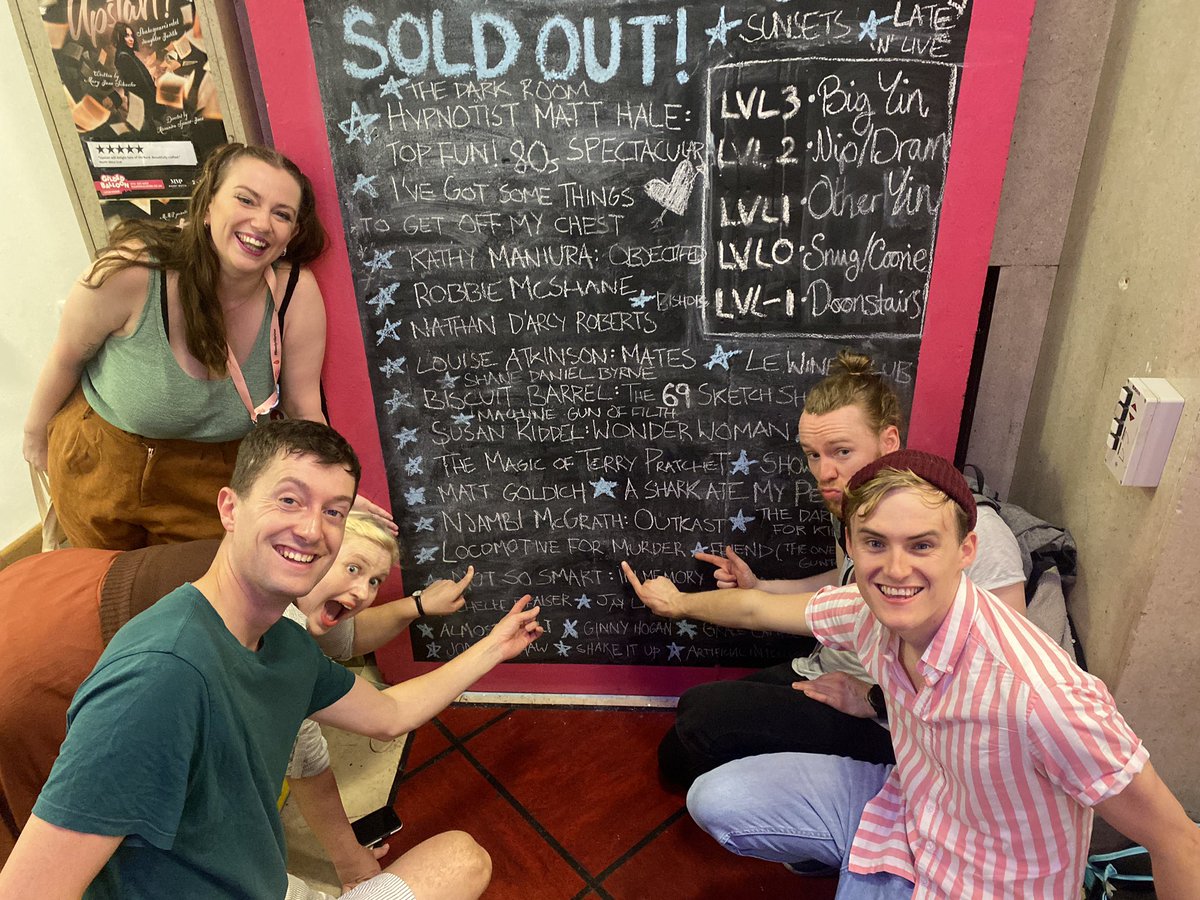 Upstart!
Shakespeare's rebel
daughter Judith
Written by
Directed by
★★★★★
GILDED
BALLOON
SOLD OUT!
SUNSETS
LATE
'N' LIVE
THE DARK ROOM
HYPNOTIST MATT HALE:
TOP FUN! 80s SPECTACULAR
I'VE GOT SOME THINGS
TO GET OFF MY CHEST
KATHY MANIURA: OBJECTIFIED
ROBBIE MCSHANE
BISHOPS
NATHAN D'ARCY ROBERTS
LOUISE ATKINSON: MATES
LE WINE CLUB
SHANE DANIEL BYRNE
BISCUIT BARREL: THE 69 SKETCH SH
MACHINE GUN OF FILTH
SUSAN RIDDEL: WONDER WOMAN
THE MAGIC OF TERRY PRATCHET
SHOW
MATT GOLDICH
A SHARK ATE MY PE
NJAMBI MCGRATH: OUTCAST
THE DAR
FOR K
LOCOMOTIVE FOR MURDER
FIEND (THE ONE
GUNT
NOT SO SMART: IN MEMORY
JAY L
ALMOST
GINNY HOGAN
SHAKE IT UP
ARTIFICIAL
LVL 3 · Big Yin
LVL 2 · Nip/Dram
LVL 1 · Other Yin
LVL 0 · Snug/Coorie
LVL-1 · Doonstairs